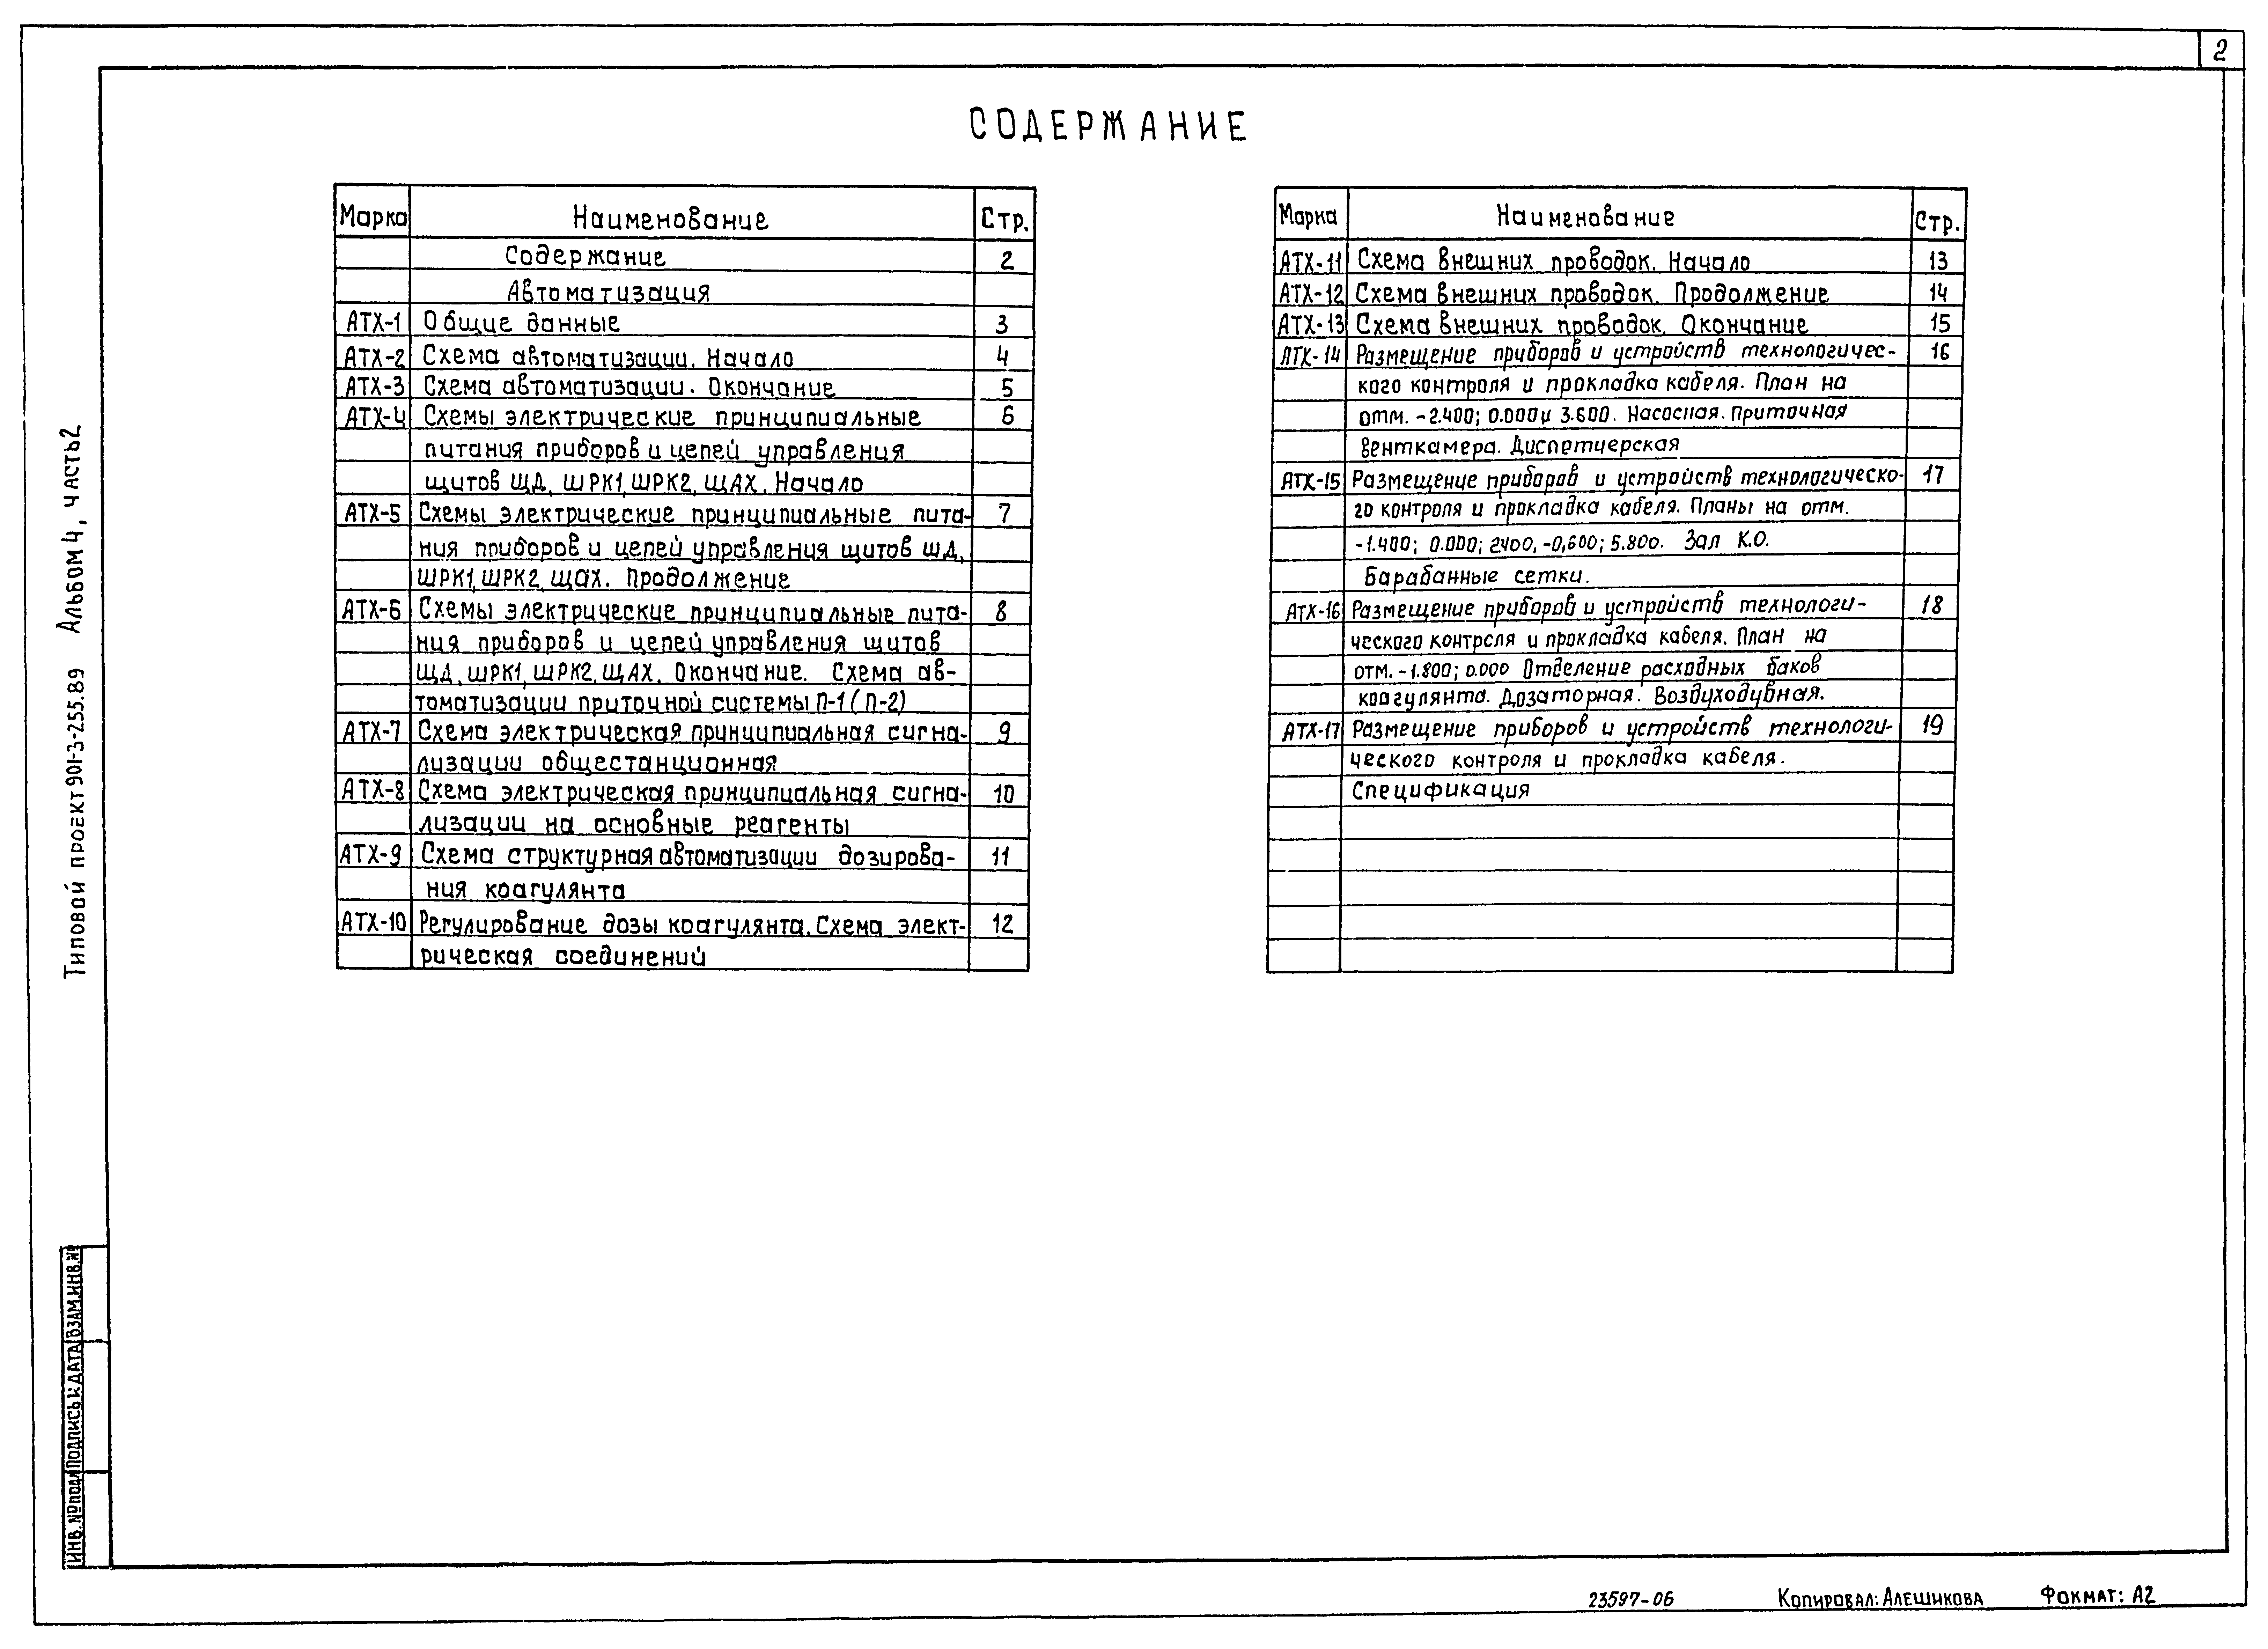 2
СОДЕРЖАНИЕ
Марка Наименование Стр.
Содержание 2
Автоматизация
АТХ-1 Общие данные 3
АТХ-2 Схема автоматизации. Начало 4
АТХ-3 Схема автоматизации. Окончание 5
АТХ-4 Схемы электрические принципиальные 6
питания приборов и цепей управления
щитов ЩД, ШРК1, ШРК2, ЩАХ. Начало
АТХ-5 Схемы электрические принципиальные пита- 7
ния приборов и цепей управления щитов ШД,
ШРК1, ШРК2, ЩАХ. Продолжение
АТХ-6 Схемы электрические принципиальные пита- 8
ния приборов и цепей управления щитов
ЩД, ШРК1, ШРК2, ЩАХ. Окончание. Схема ав-
томатизации приточной системы П-1 (П-2)
АТХ-7 Схема электрическая принципиальная сигна- 9
лизации общестанционная
АТХ-8 Схема электрическая принципиальная сигна- 10
лизации на основные реагенты
АТХ-9 Схема структурная автоматизации дозирова- 11
ния коагулянта
АТХ-10 Регулирование дозы коагулянта. Схема элект- 12
рическая соединений
Марка Наименование Стр.
АТХ-11 Схема внешних проводок. Начало 13
АТХ-12 Схема внешних проводок. Продолжение 14
АТХ-13 Схема внешних проводок. Окончание 15
АТХ-14 Размещение приборов и устройств технологичес- 16
кого контроля и прокладка кабеля. План на
отм. -2.400; 0.000 и 3.600. Насосная. Приточная
венткамера. Диспетчерская
АТХ-15 Размещение приборов и устройств технологическо- 17
го контроля и прокладка кабеля. Планы на отм.
-1.400; 0.000; 2400, -0,600; 5.800. Зал К.О.
Барабанные сетки.
АТХ-16 Размещение приборов и устройств технологи- 18
ческого контроля и прокладка кабеля. План на
отм. -1.800; 0.000 Отделение расходных баков
коагулянта. Дозаторная. Воздуходувная.
АТХ-17 Размещение приборов и устройств технологи- 19
ческого контроля и прокладка кабеля.
Спецификация
Типовой проект 901-3-255.89 Альбом 4, часть 2
ИНВ. № ПОДЛ ПОДПИСЬ И ДАТА ВЗАМ.ИНВ.№
23597-06 Копировал: Алешикова Фокмат: А2